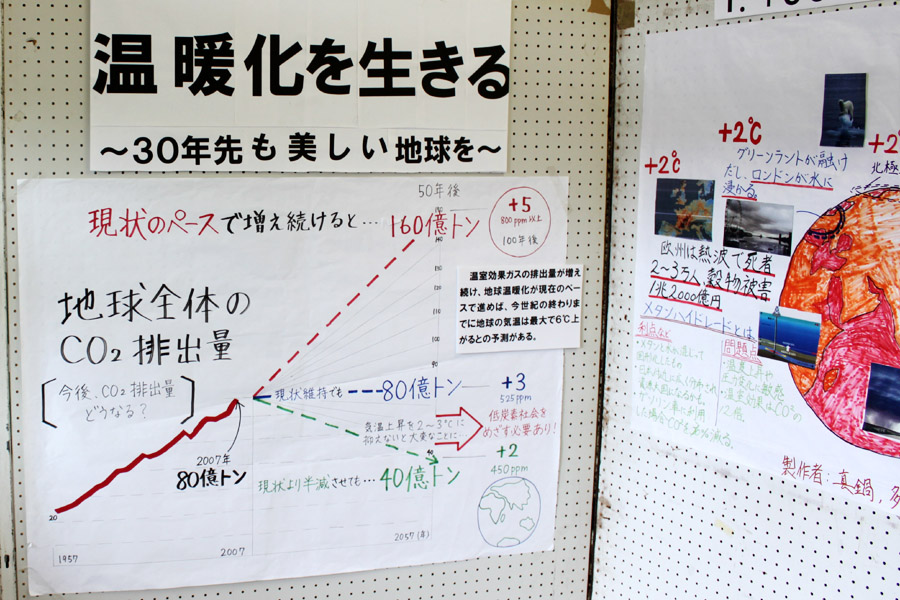 温暖化を生きる
～30年先も美しい地球を～
50年後
現状のペースで増え続けると…160億トン
+5
800ppm以上
100年後
温室効果ガスの排出量が増え
続け、地球温暖化が現在のペー
スで進めば、今世紀の終わりま
でに地球の気温は最大で6℃上
がるとの予測がある。
地球全体の
CO₂排出量
今後、CO₂排出量
どうなる?
現状維持でも
80億トン
+3
525ppm
気温上昇を2～3℃に
抑えないと大変なことに…
低炭素社会を
めざす必要あり!
2007年
80億トン
現状より半減させても…40億トン
+2
450ppm
20
40
90
1957
2007
2057(年)
+2℃
+2℃
グリーンラントが融け
だし、ロンドンが水に
浸かる。
北極
欧州は熱波で死者
2～3万人 穀物被害
1兆2000億円
メタンハイドレードとは
利点など
問題点
製作者:真鍋,